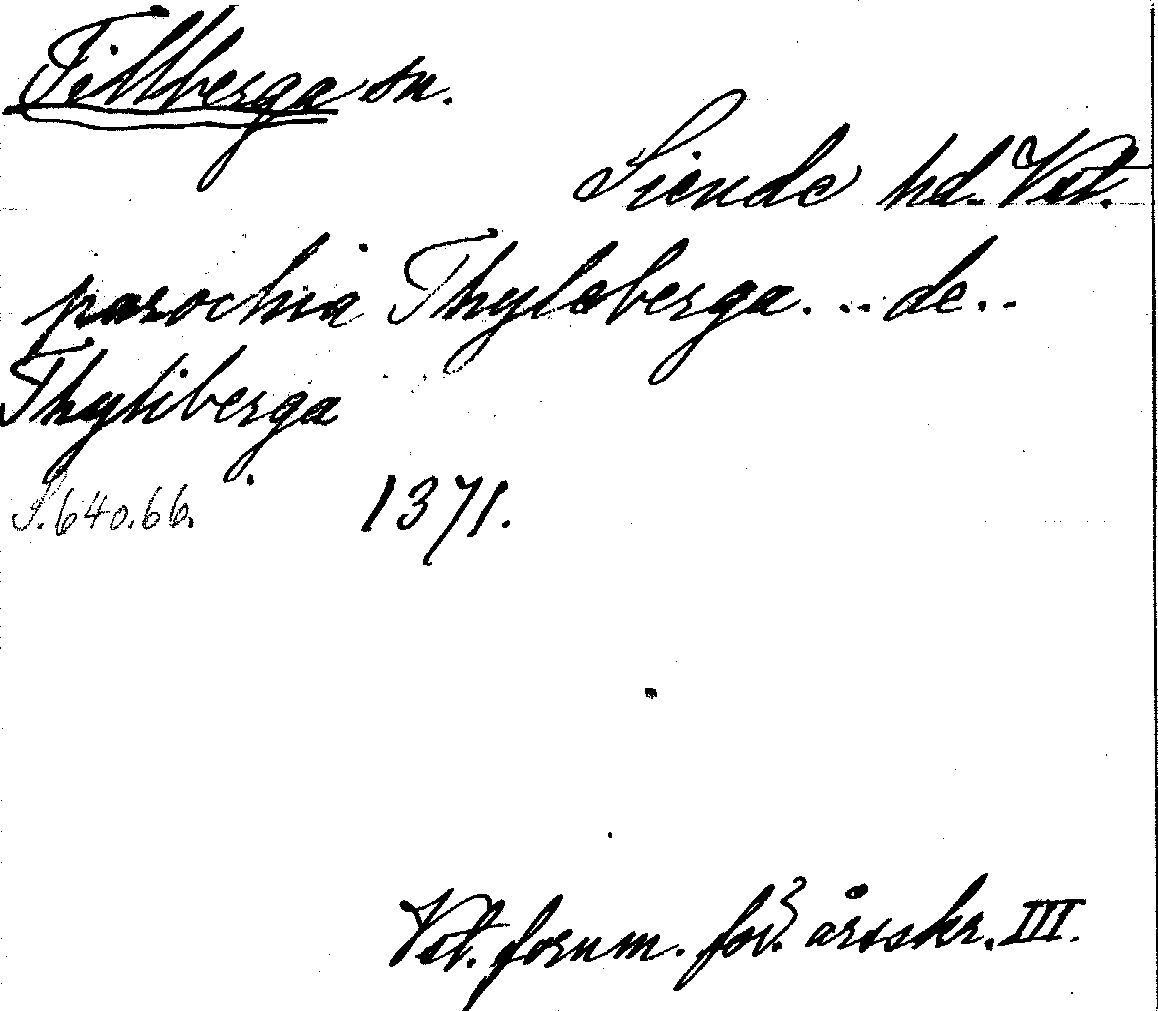 Tillberga sn.
Siende hd. Vst.
parochia Thyleberga... de..
Thyliberga
S.640.66. 1371.
Vst. fornm. för:s årsskr. III.